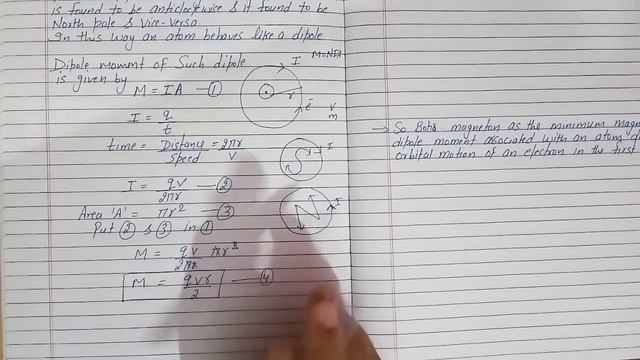 is found to be anticlockwise & it found to be
North pole & Vice-Versa
In this way an atom behaves like a dipole
Dipole moment of Such dipole
is given by
M = IA —①
I = q/t
time = Distance/Speed = 2πr/v
I = qv/2πr —②
Area 'A' = πr² —③
Put ② & ③ in ①
M = qv/2πr πr²
M = qvr/2 —④
I M=NIA
r
e̅ v
m
S I
N I
→ So Bohr magneton as the minimum
dipole moment associated with an atom
orbital motion of an electron in the first